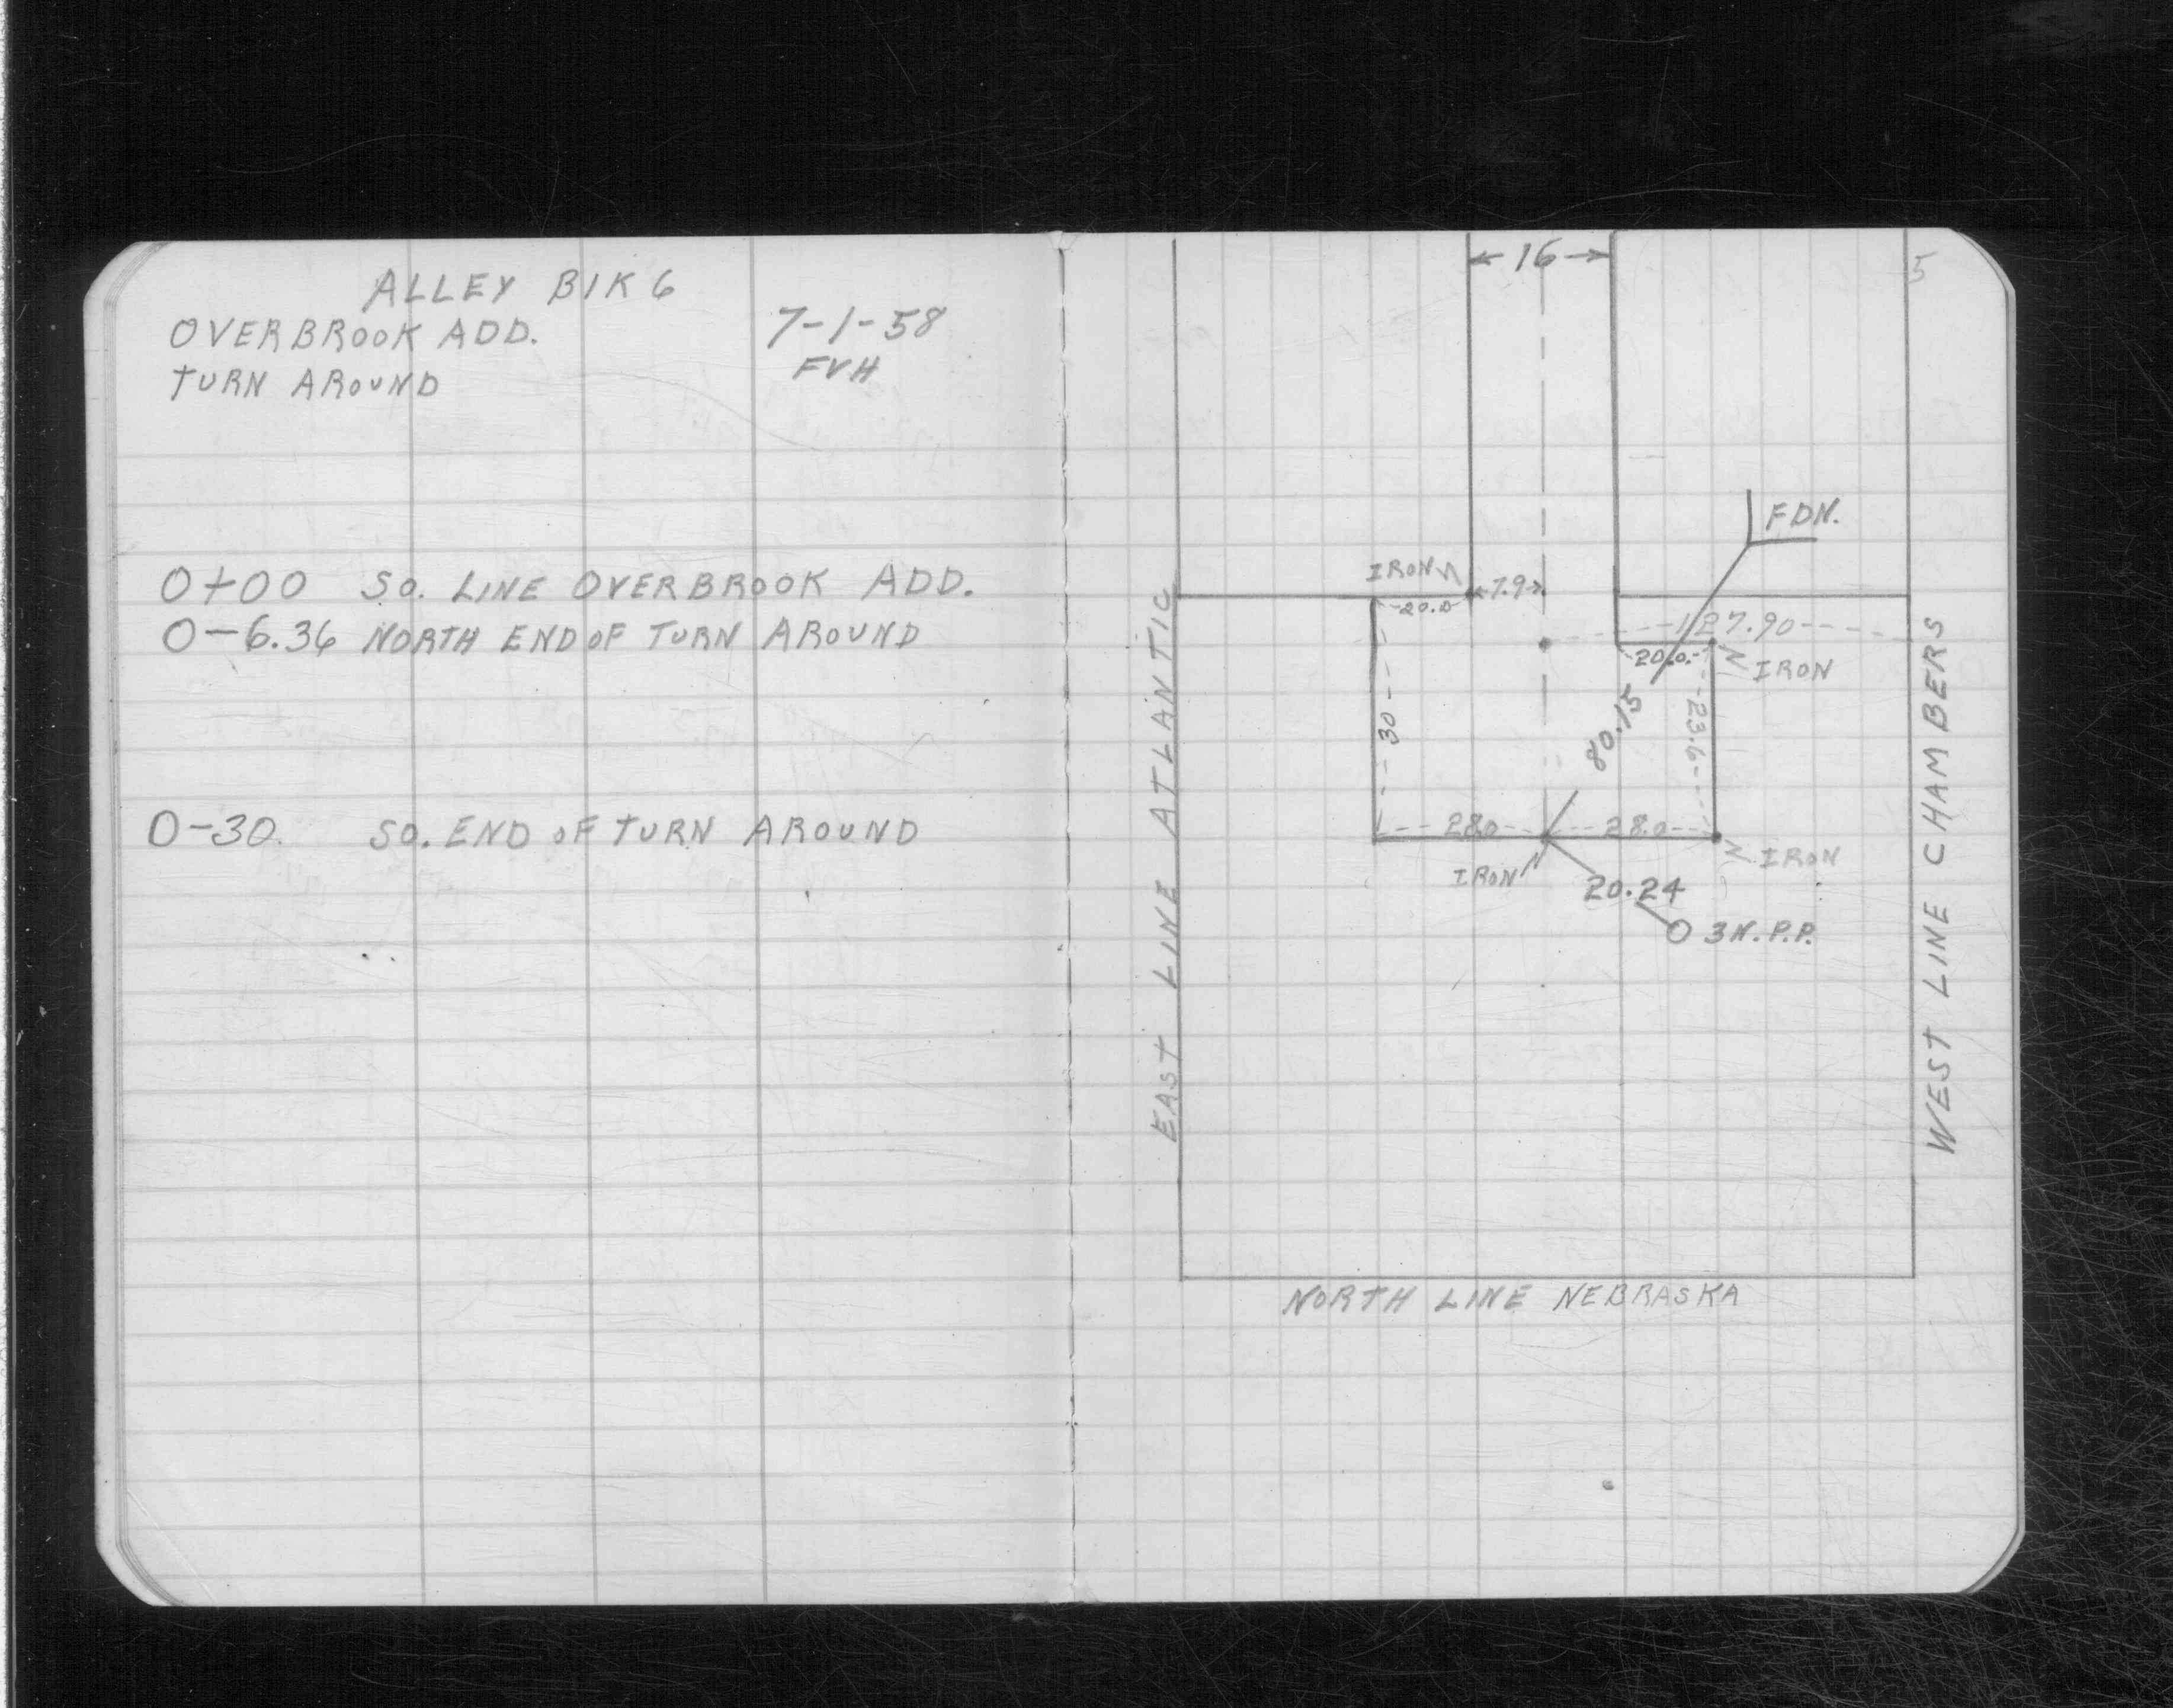 ALLEY BlK 6
OVERBROOK ADD.
TURN AROUND
7-1-58
FVH
0+00 SO. LINE OVERBROOK ADD.
0-6.36 NORTH END OF TURN AROUND
0-30. SO. END OF TURN AROUND
5
16
FDN.
IRON
7.9
20.0
127.90
20.0
IRON
EAST LINE ATLANTIC
30
80.15
23.6
WEST LINE CHAMBERS
28.0
28.0
IRON
IRON
20.24
3N.P.P.
NORTH LINE NEBRASKA